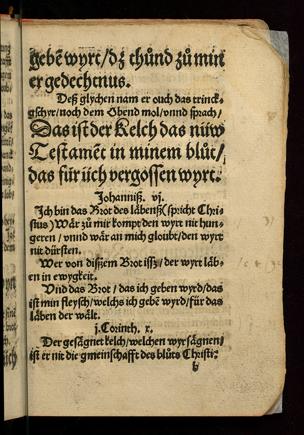 gebē wyrt/dz thůnd zů miner
gedechtnus.
Deß glychen nam er ouch das trinck-
gschyr/noch dem Obend mol/vnnd sprach/
Das ist der Kelch das nüw
Testamēt in minem blůt/
das für üch vergossen wyrt.
Johanniß. vj.
Ich bin das Brot des läbenß (spricht Chri-
stus) Wär zů mir kompt den wyrt nit hun-
geren/vnnd wär an mich gloubt/den wyrt
nit dürsten.
Wer von dißem Brot issz/der wyrt läb-
en in ewygkeit.
Vnd das Brot/das ich geben wyrd/das
ist min fleysch/welchs ich gebē wyrd/für das
läben der wält.
j. Corinth. x.
Der gesägnet kelch/welchen wyr sägnen/
ist er nit die gmeinschafft des blůts Christi:
b